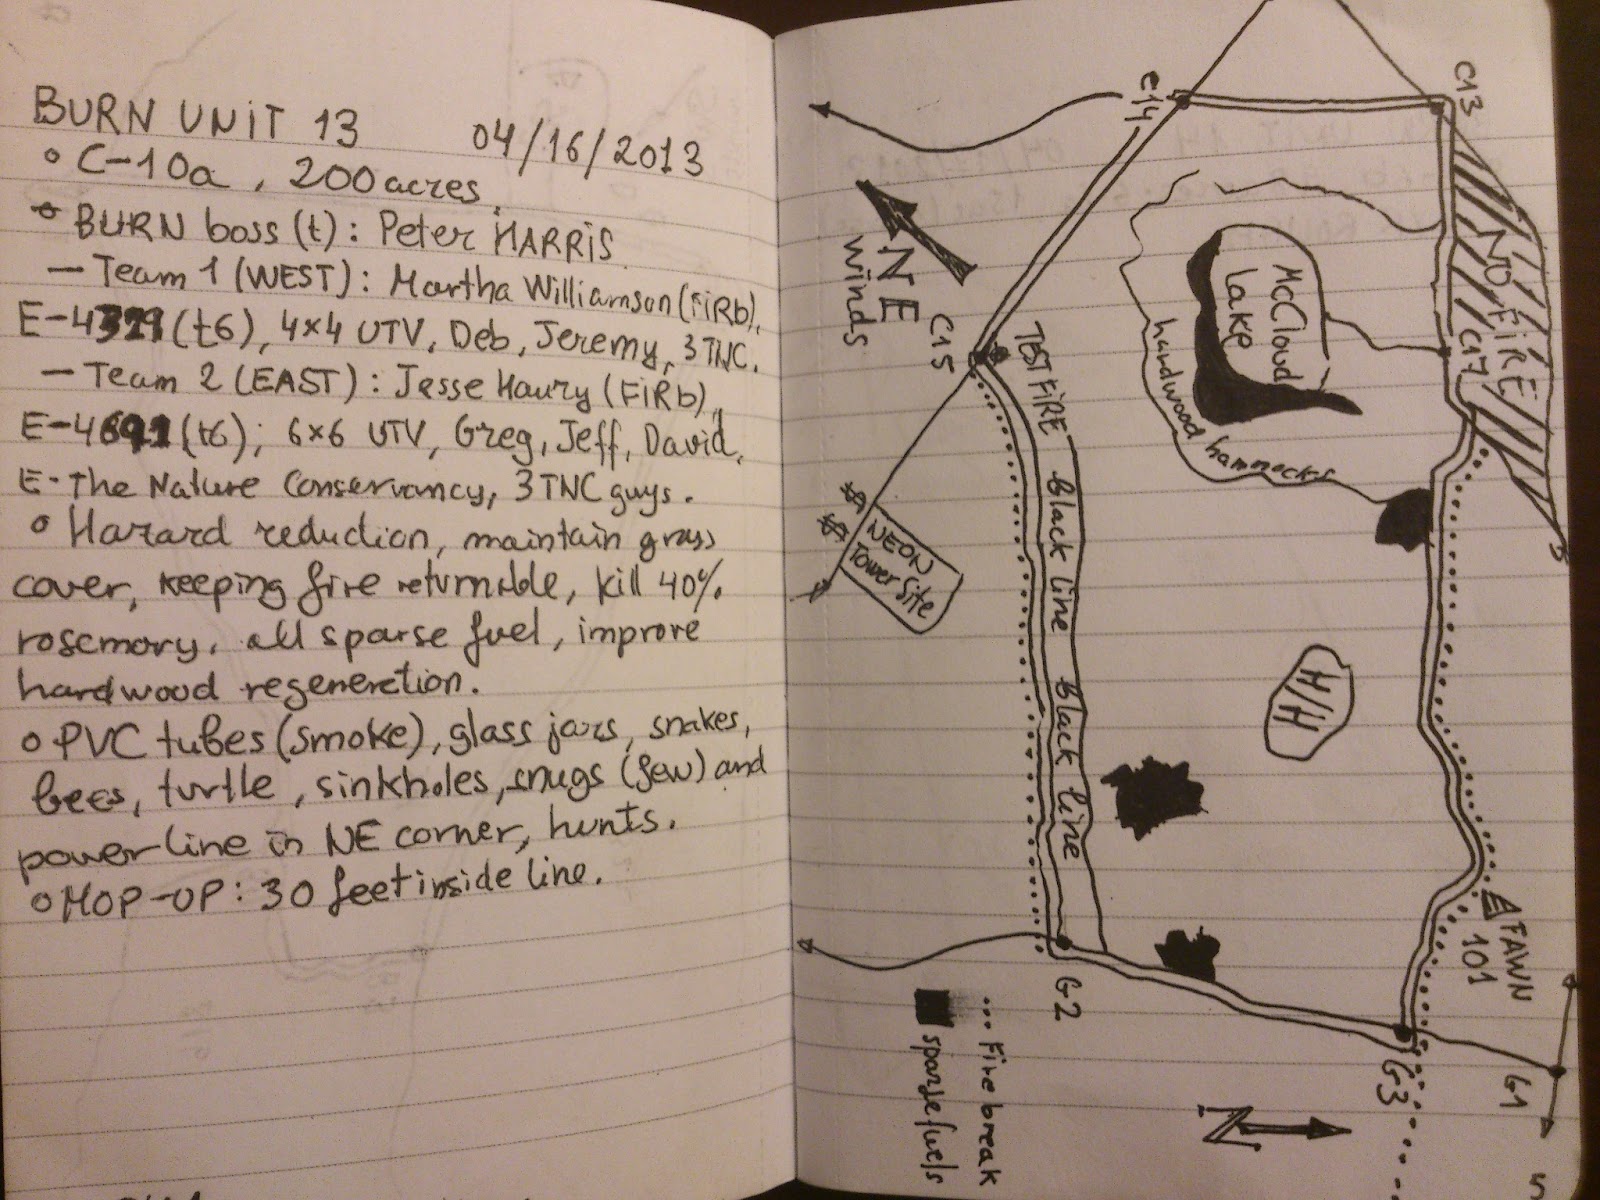 BURN UNIT 13 04/16/2013
° C-10a, 200 acres.
BURN boss (t): Peter HARRIS
— Team 1 (WEST): Martha Williamson (FiRb),
(t6), 4x4 UTV, Deb, Jeremy, 3 TNC.
— Team 2 (EAST): Jesse Haury (FiRb),
(t6); 6x6 UTV, Greg, Jeff, David,
E- The Nature Conservancy, 3 TNC guys.
° Hazard reduction, maintain grass
cover, keeping fire kill 40%
rosemary, all sparse fuel, improve
hardwood regeneretion.
° PVC tubes (smoke), glass jars, snakes,
bees, turtle, sinkholes, snugs (few) and
power line in NE corner, hunts.
° MOP-UP: 30 feet inside line.
C13
C14
NO FIRE
McCloud
Lake
C17
hardwood hamnocks
NE
winds
C15
TEST FIRE black line black line
$ $
NEON
Tower Site
H/H
FAWN
101
G2
G3
G1
N
... Fire break
sparse fuels
5
5